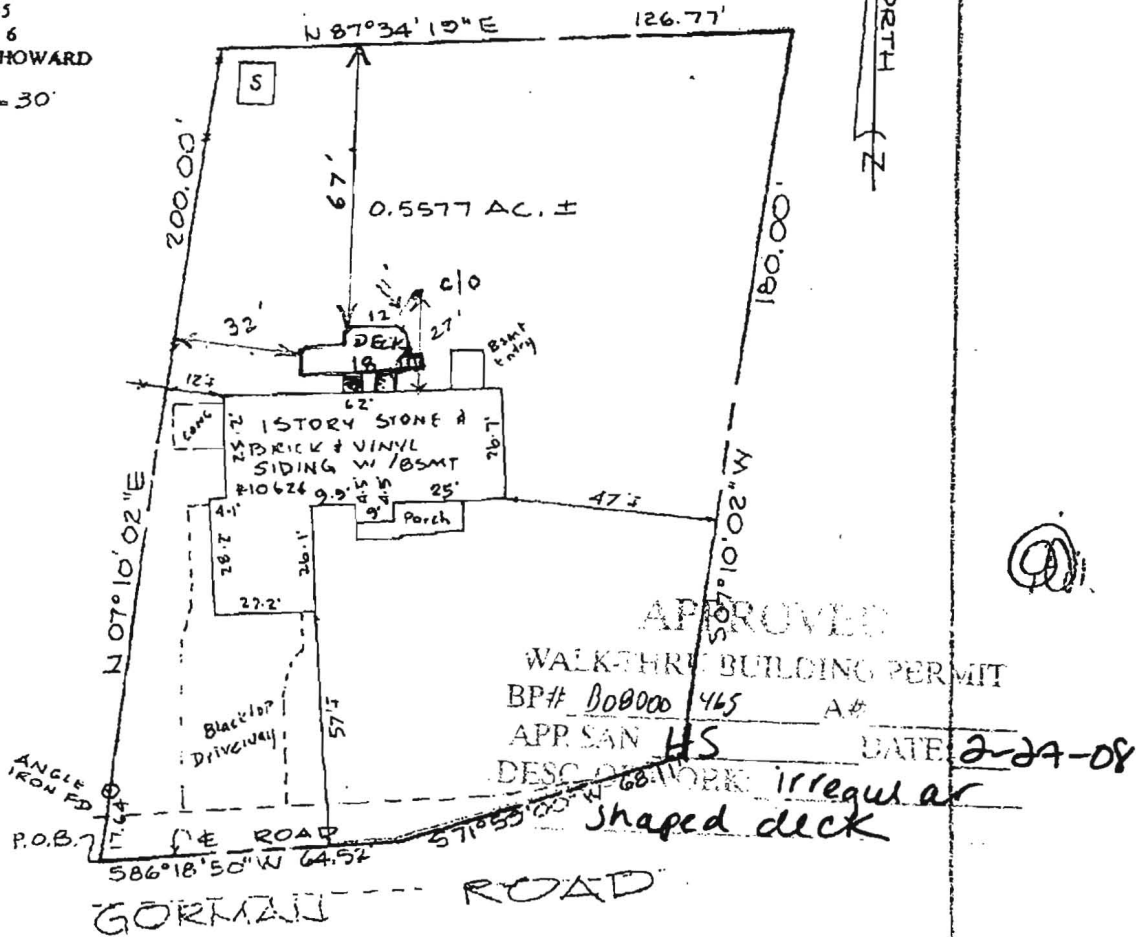 5
6
HOWARD
= 30'
N 87°34'19" E
126.77'
S
200.00'
67'
0.5577 AC. ±
180.00'
11'
c/o
32'
12
27'
DECK
18
Bsmt
Entry
12'±
62'
CONC
25.2'
1 STORY STONE &
BRICK & VINYL
SIDING W/BSMT
#10626
26.7'
9.9'
4.5
4.5
25'
4.1'
9'
Porch
47'±
28.2'
26.1'
27.2'
N 07°10'02" E
S07°10'02"W
Blacktop
Driveway
57'±
ANGLE
IRON FD
17.64
P.O.B.
℄ ROAD
S86°18'50"W 64.52'
S71°55'00" W 68.11'
GORMAN ROAD
Z
APPROVED
WALK-THRU BUILDING PERMIT
BP# B08000 465 A#
APP. SAN HS DATE
DESC OF WORK: irregular
shaped deck